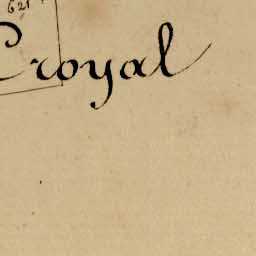 621
royal